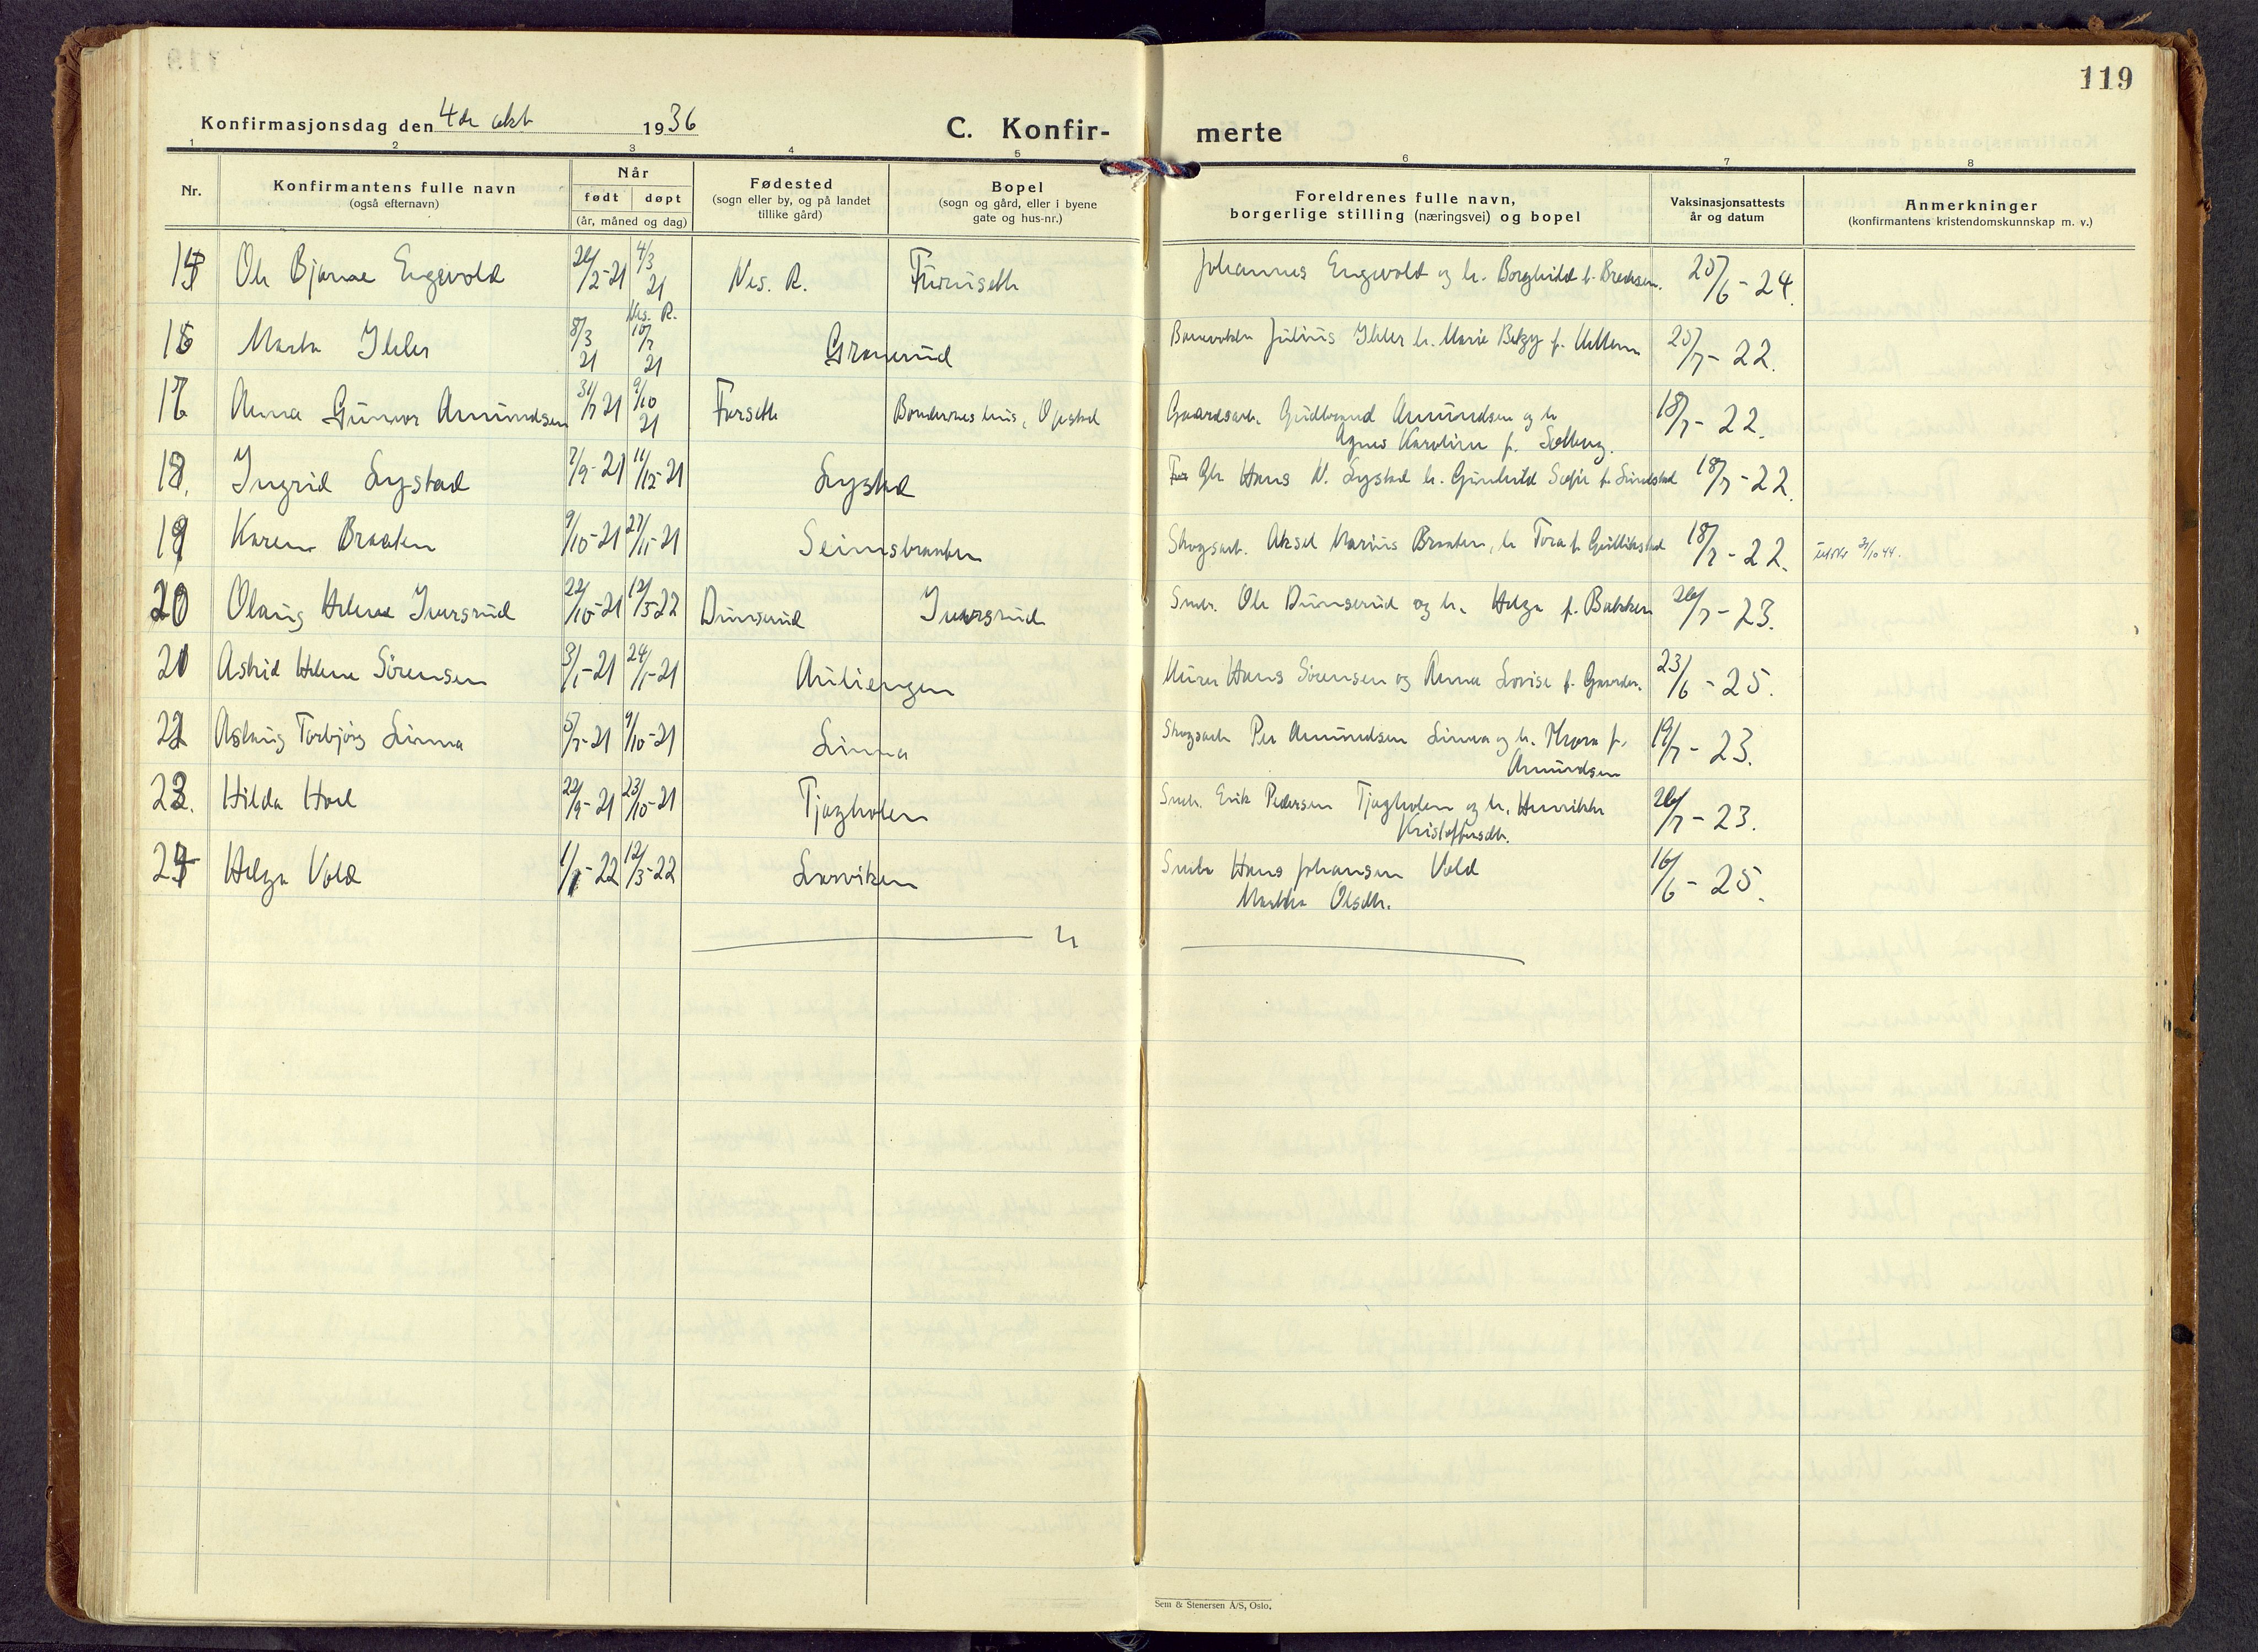 119
Konfirmasjonsdag den 4de okt 1936
C. Konfir- merte
1 2 3 4 5 6 7 8
Nr.
Konfirmantens fulle navn
(også efternavn)
Når
født døpt
(år, måned og dag)
Fødested
(sogn eller by, og på landet
tillike gård)
Bopel
(sogn og gård, eller i byene
gate og hus-nr.)
Foreldrenes fulle navn,
borgerlige stilling (næringsvei) og bopel
Vaksinasjonsattests
år og datum
Anmerkninger
(konfirmantens kristendomskunnskap m. v.)
Ole Bjarne Engevold 4/3 21 Nes. R. Furuseth Johannes Engevold og h. Borghild f. 25/6-24.
Nes. R.
8/3 21 10/7 21 Granerud Julius h. Marie f. 25/7-22.
Anna Gunvor Amundsen 31/7 21 9/10 21 Furseth Gaardsarb. Gudbrand Amundsen og h. 18/7-22.
Agnes Karoline f. Solberg.
18. Ingrid Lystad 7/9-21 11/12-21 Lystad Hans N. Lystad h. Gunhild Sofie f. Lundstad 18/7-22.
19 Karen Braaten 9/10-21 27/11-21 Seimsbraaten Skogsarb. Aksel Marius Braaten, h. Tora f. 18/7-22. 
20 Olaug Helene Iversrud 22/10-21 12/3-22 Dunserud Iversrud Smbr. Ole Dunserud og h. Helga f. Bakken 26/7-23.
21 Astrid Helene Sörensen 3/1-21 24/1-21 Auliengen Murer Hans Sörensen og Anna Lovise f. 23/6-25.
22 Aslaug Torbjörg Linna 5/7-21 9/10-21 Linna Skogsarb. Per Amundsen Linna og h. f. 19/7-23.
Amundsen
23. Hilda Hval 22/9-21 23/10-21 Tjøgholen Smbr. Erik Pedersen Tjøgholen og h. Henrikke 26/7-23.
Kristoffersdtr.
24 Helga Vold 1/1-22 12/3-22 Larviken Smbr Hans Johansen Vold 16/6-25.
Martha Olsdtr.
Sem & Stenersen A/S, Oslo.